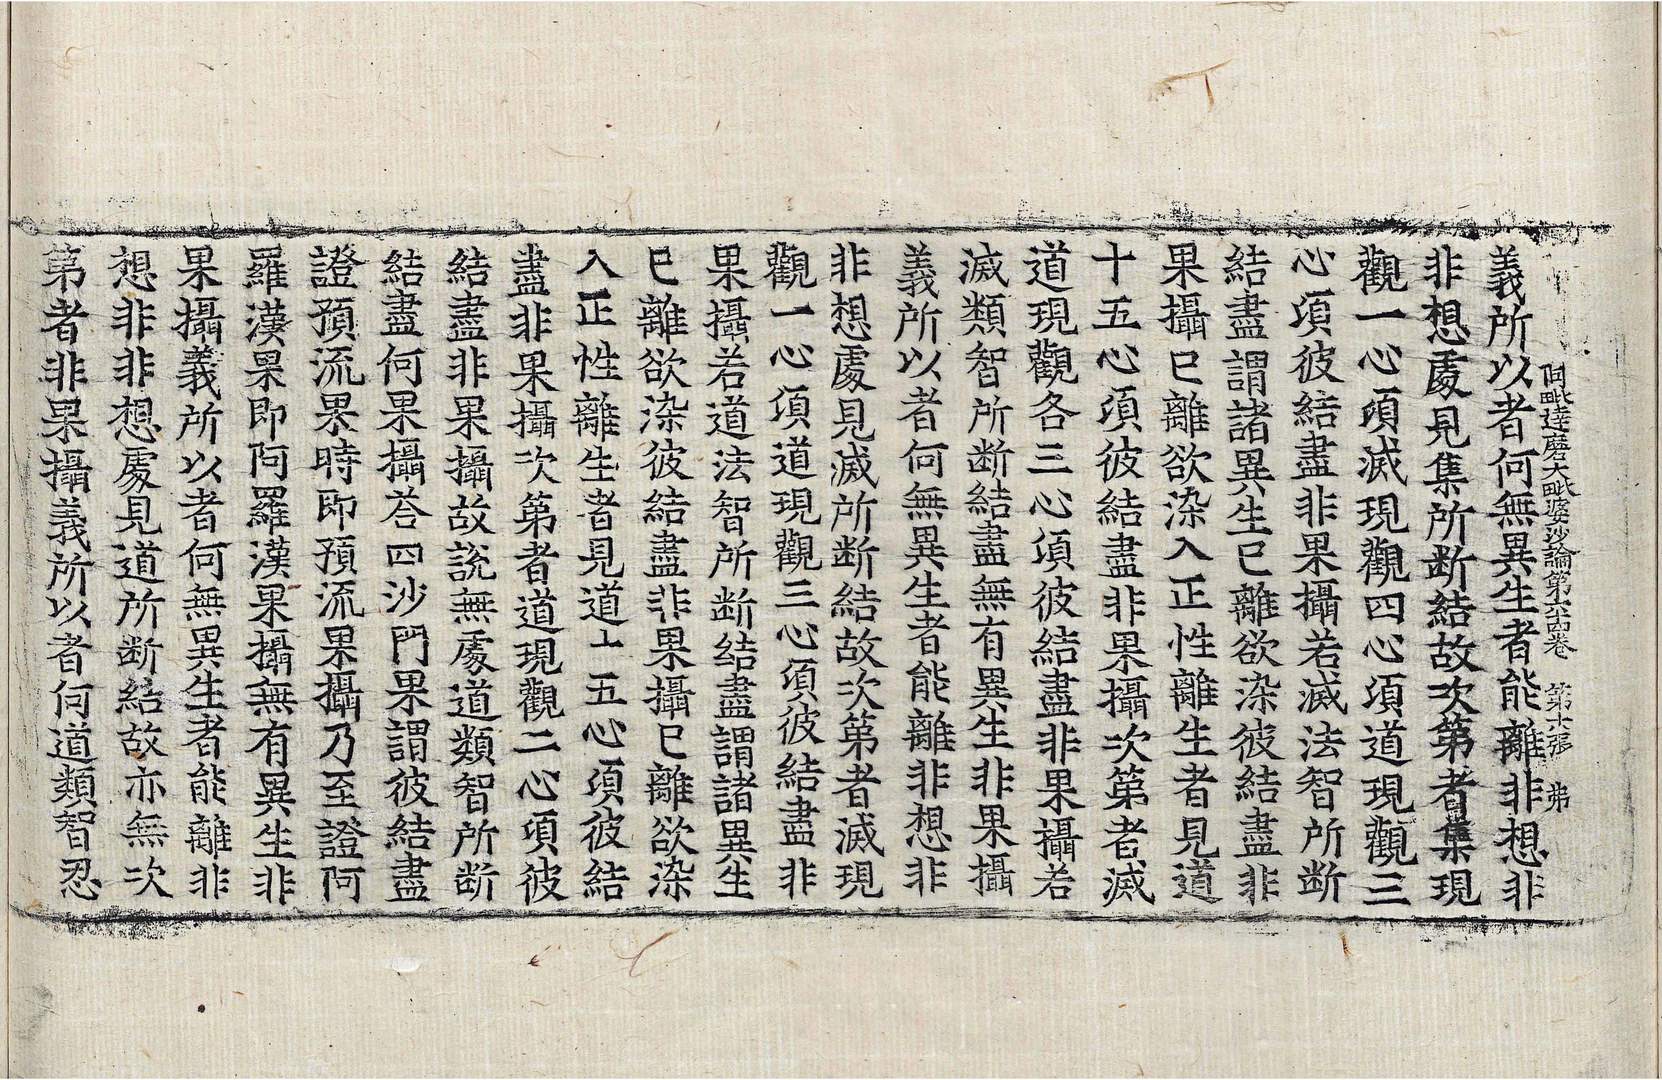 阿毗達磨大毗婆沙論第六十四卷　第十張　弗
義所以者何無異生者能離非想非
非想處見集所斷結故次第者集現
觀一心頃滅現觀四心頃道現觀三
心頃彼結盡非果攝若滅法智所斷
結盡謂諸異生已離欲染彼結盡非
果攝已離欲染入正性離生者見道
十五心頃彼結盡非果攝次第者滅
道現觀各三心頃彼結盡非果攝若
滅類智所斷結盡無有異生非果攝
義所以者何無異生者能離非想非
非想處見滅所斷結故次第者滅現
觀一心頃道現觀三心頃彼結盡非
果攝若道法智所斷結盡謂諸異生
已離欲染彼結盡非果攝已離欲染
入正性離生者見道十五心頃彼結
盡非果攝次第者道現觀二心頃彼
結盡非果攝故說無處道類智所斷
結盡何果攝荅四沙門果謂彼結盡
證預流果時即預流果攝乃至證阿
羅漢果即阿羅漢果攝無有異生非
果攝義所以者何無異生者能離非
想非非想處見道所斷結故亦無次
第者非果攝義所以者何道類智忍